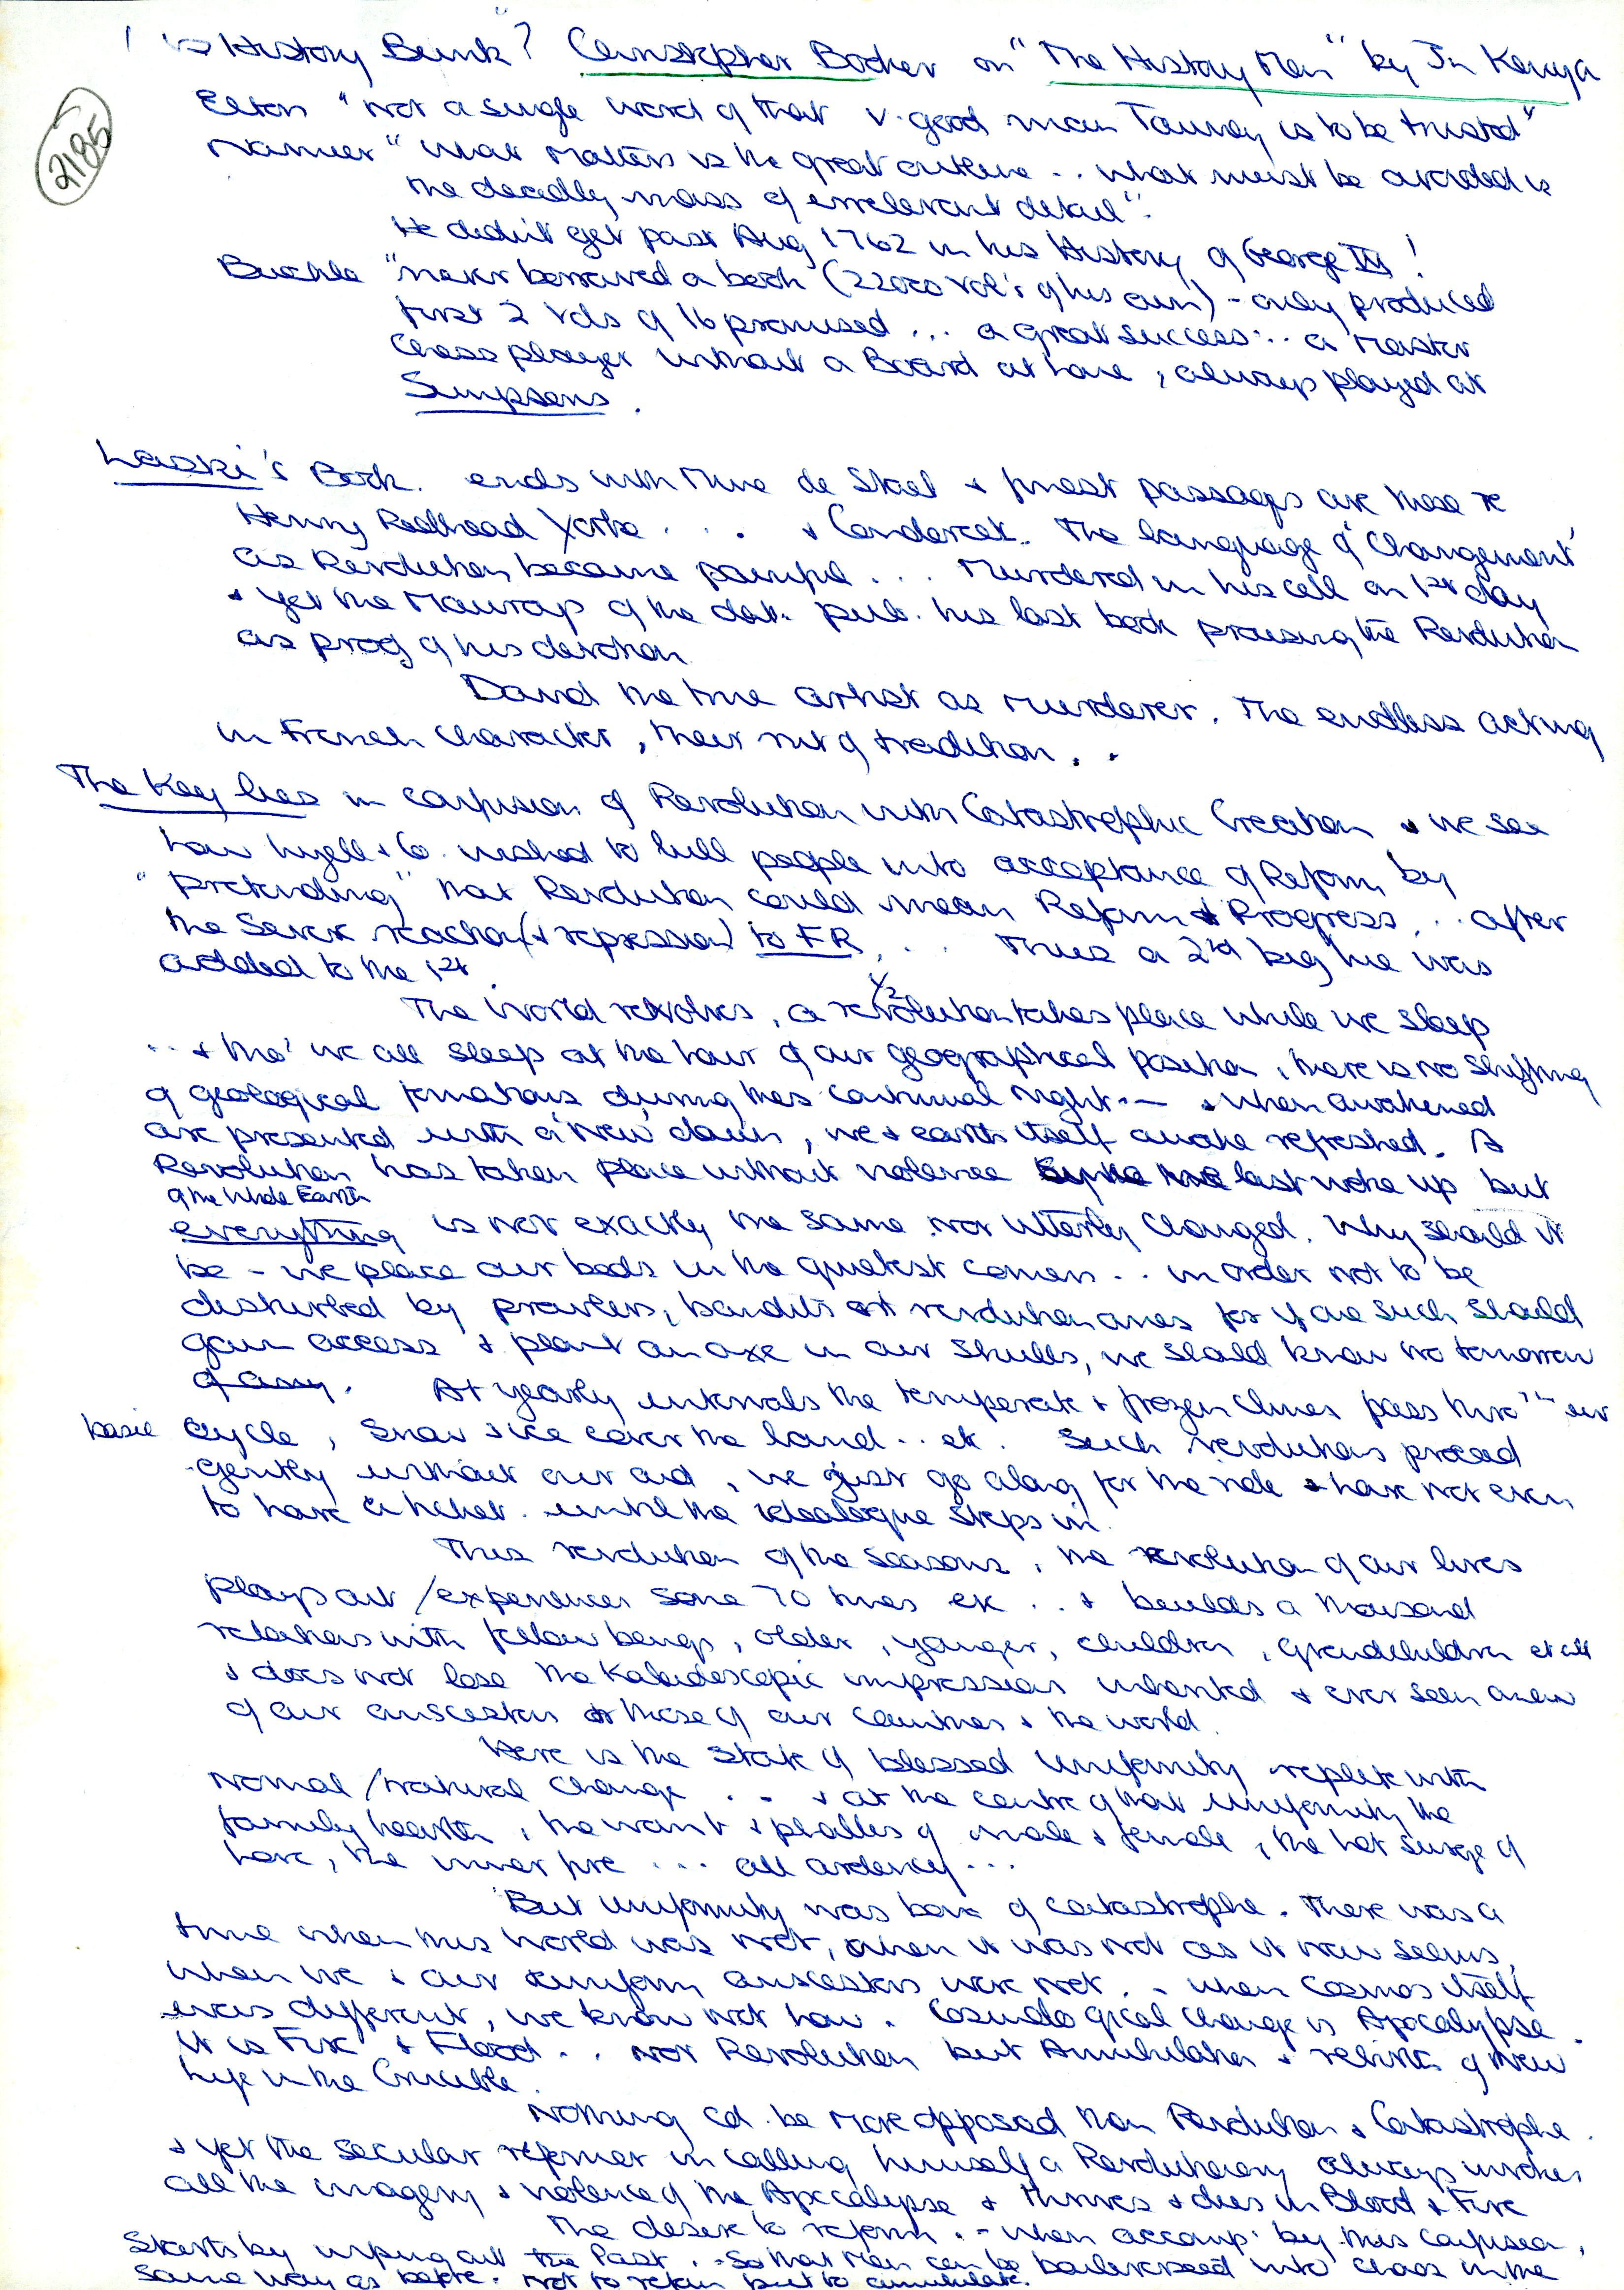 " is History Bunk"? Christopher Booker on "The History Men" by Jn Kenya
2185
Elton "Not a single word of that v. good man Tawney is to be trusted"
Namier "What matters is the great outline .. what must be avoided is
the deadly mass of irrelevant detail".
He didn't get past Aug 1762 in his History of George III !
Buckle "never borrowed a book (22000 Vol's of his own) - only produced
first 2 Vols of 16 promised ... a great success ... a Master
Chess player without a Board at home, always played at
Simpsons.
Laski's Book. ends with Mme de Stael & finest passages are those re
Henry Redhead Yorke . . . & Condorcet. The language of 'Changement'
as Revolution became painful ... Murdered in his cell on 1st day
& yet the of the pub. his last book praising the Revolution
as proof of his devotion
David the true artist as Murderer. The endless acting
in French character, their of tradition . .
The Key lies in confusion of Revolution with Catastrophic Creation & we see
how Lyell & Co. wished to lull people into acceptance of Reform by
"pretending" that Revolution could mean Reform & Progress . . after
the Severe reaction (& repression) to FR . . . Thus a 2nd big lie was
added to the 1st.
The World revolves, a ½ revolution takes place while we sleep
.. & tho' we all sleep at the hour of our geographical position, there is no shifting
of geological formations during this continual night .— & when awakened
are presented with a 'new' dawn, we & earth itself awake refreshed. A
Revolution has taken place without violence last woke up but
of the Whole Earth
everything is not exactly the same nor utterly changed. Why should it
be - we place our beds in the quietest corners .. in order not to be
disturbed by prowlers, bandits or revolutionaries for if one such should
gain access & plant an axe in our skulls, we should know no tomorrow
of any. At yearly intervals the temperate & frozen climes pass thro' their
basic cycle, Snow & ice cover the land .. etc. Such revolutions proceed
gently without our aid, we just go along for the ride & have not even
to have a ticket. until the ideologue steps in.
This revolution of the seasons, the revolution of our lives
plays out / experiences some 70 times etc . . & builds a thousand
relations with fellow beings, older, younger, children, grandchildren et all
& does not lose the Kaleidescopic impression inherited & ever seen anew
of our anscestors or those of our countries & the world.
Here is the State of blessed Uniformity replete with
Normal / natural change . . & at the centre of that uniformity the
family hearth, the & phallus of male & female, the hot surge of
love, the inner fire ... all ardency ...
But Uniformity was born of catastrophe. There was a
time when this World was not, when it was not as it now seems,
when we & our uniform anscestors were not . - when Cosmos itself
was different, we know not how. Cosmological Change is Apocalypse.
It is Fire & Flood . . not Revolution but Annihilation & rebirth of New
Life in the Crucible.
Nothing cd. be more opposed than Revolution & Catastrophe.
& yet the secular reformer in calling himself a Revolutionary always invokes
all the imagery & violence of the Apocalypse & thrives & dies in Blood & Fire
The desire to reform . - when accomp. by this confusion,
Starts by wiping out the Past . . So that Man can be into chaos in the
same way as before. Not to retain but to annihilate.